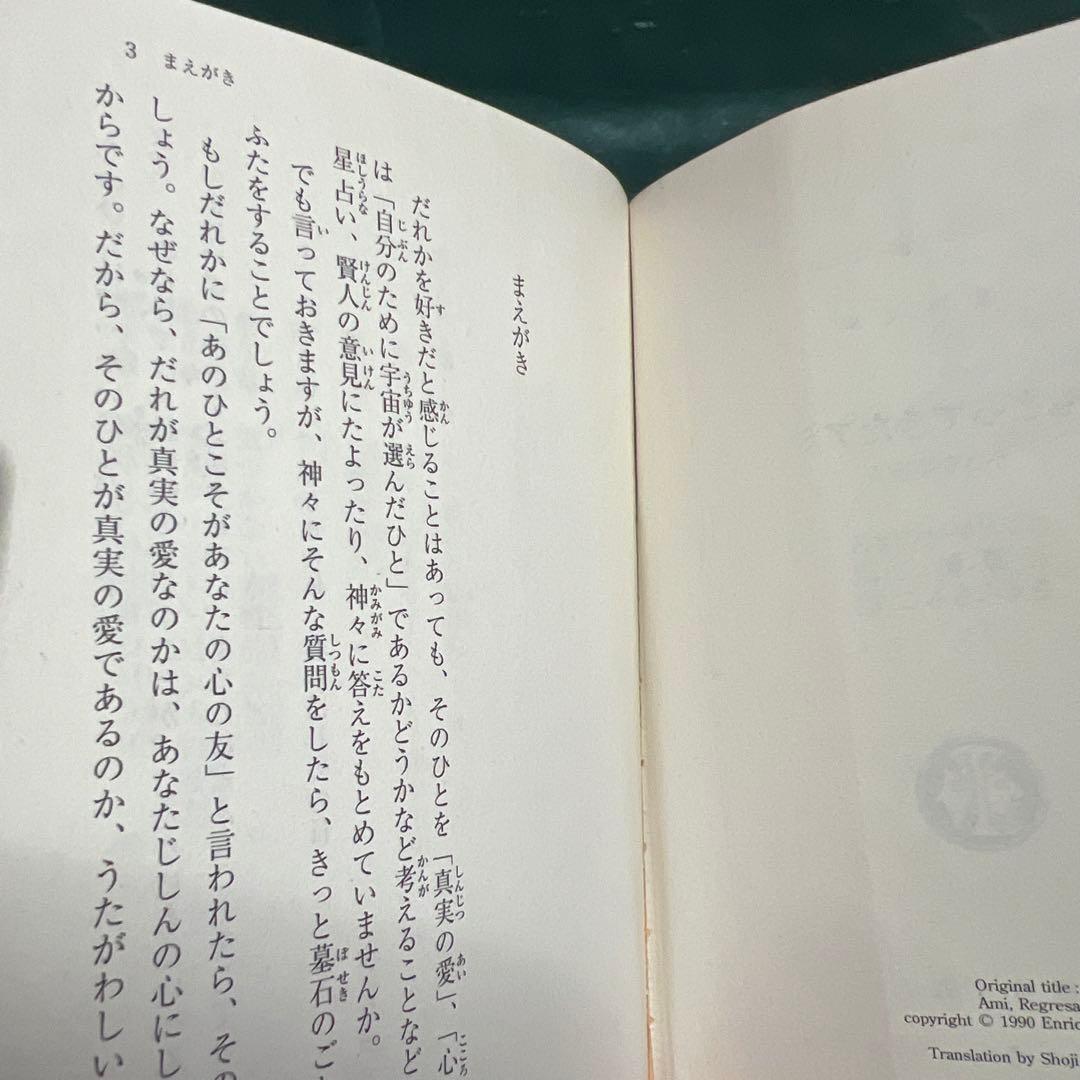 3 まえがき
まえがき
だれかを好きだと感じることはあっても、そのひとを「真実の愛」、「心
は「自分のために宇宙が選んだひと」であるかどうかなど考えることなど
星占い、賢人の意見にたよったり、神々に答えをもとめていませんか。
でも言っておきますが、神々にそんな質問をしたら、きっと墓石のご
ふたをすることでしょう。
もしだれかに「あのひとこそがあなたの心の友」と言われたら、その
しょう。なぜなら、だれが真実の愛なのかは、あなたじしんの心にし
からです。だから、そのひとが真実の愛であるのか、うたがわしい
Original title :
Ami, Regresa
copyright © 1990 Enric
Translation by Shoji